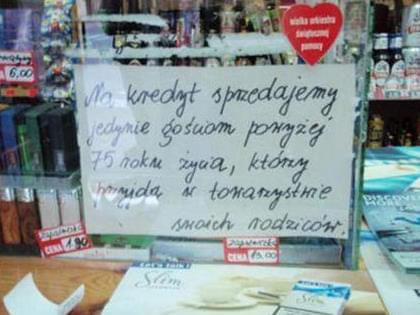 wielka orkiestra
świątecznej
pomocy
6,00
Na kredyt sprzedajemy
jedynie gościom powyżej
75 roku życia, którzy
przyjdą w towarzystwie
swoich rodziców.
zapalniczka
CENA 1.90
zapalniczka
CENA 15.00
Let's talk!
Slim
DISCOVER
MORE
Slim